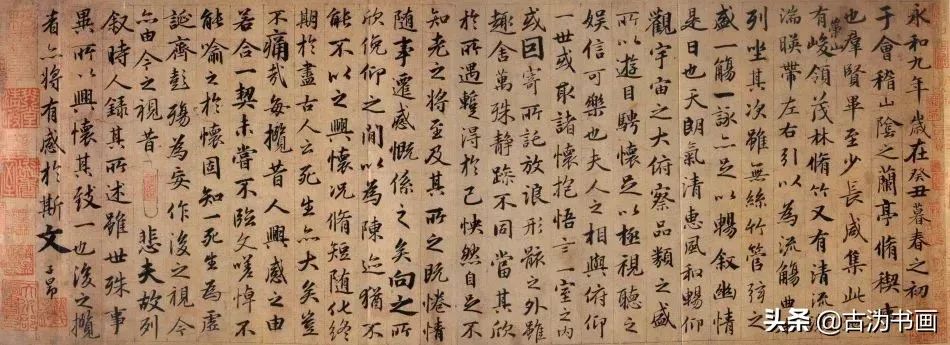 永和九年歲在癸丑暮春之初
于會稽山陰之蘭亭脩稧事
也羣賢畢至少長咸集此
有崇山峻領茂林脩竹又有清流
湍暎帶左右引以為流觴曲
列坐其次雖無絲竹管弦之
盛一觴一詠亦足以暢叙幽情
是日也天朗氣清惠風和暢仰
觀宇宙之大俯察品類之盛
所以遊目騁懷足以極視聽之
娱信可樂也夫人之相與俯仰
一世或取諸懷抱悟言一室之內
或因寄所託放浪形骸之外雖
趣舍萬殊静躁不同當其欣
於所遇蹔得於己怏然自足不
知老之將至及其所之既惓情
随事遷感慨係之矣向之所
欣俛仰之閒以為陳迹猶不
能不以之興懷况脩短随化終
期於盡古人云死生亦大矣豈
不痛哉每攬昔人興感之由
若合一契未嘗不臨文嗟悼不
能喻之於懷固知一死生為虛
誕齊彭殤為妄作後之視今
亦由今之視昔悲夫故列
叙時人錄其所述雖世殊事
異所以興懷其致一也後之攬
者亦將有感於斯文子昂
头条 @古沕书画